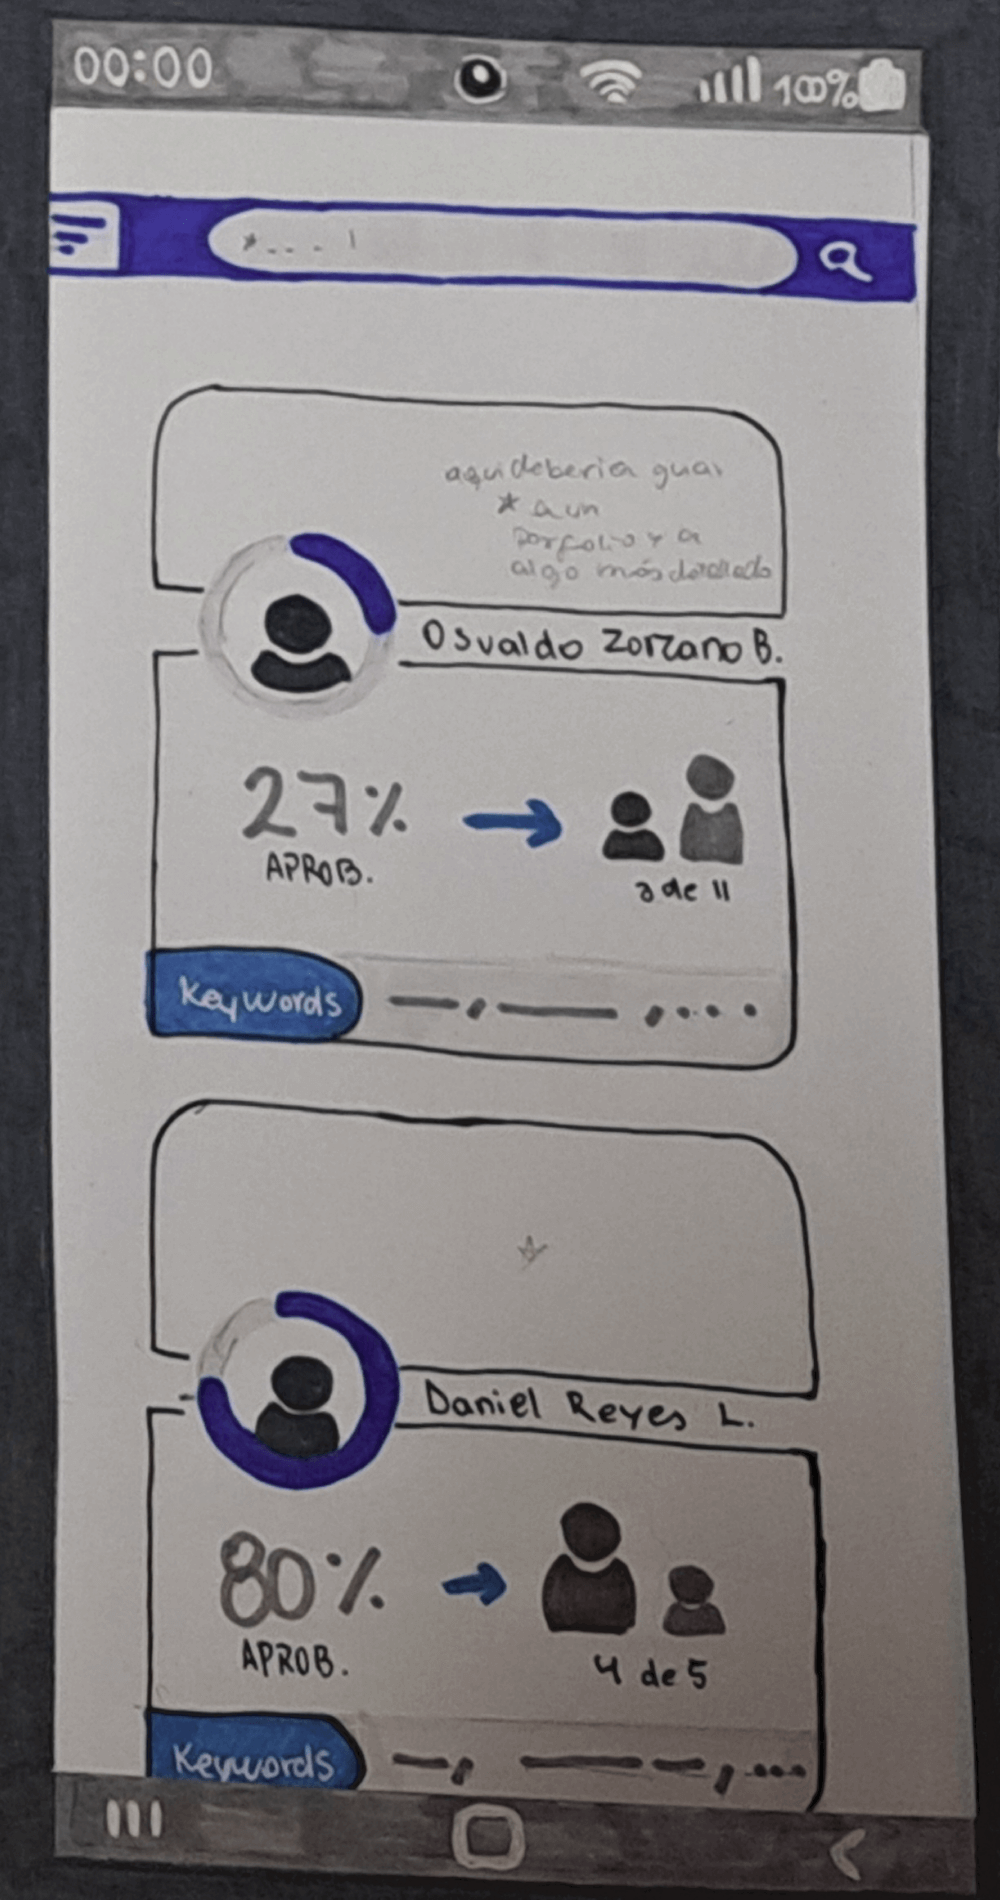 00:00 100%
aqui deberia guiar
* a un
porfolio y a
algo más detallado
Osvaldo Zorzano B.
27%
APROB.
3 de 11
Keywords
Daniel Reyes L.
80%
APROB.
4 de 5
Keywords